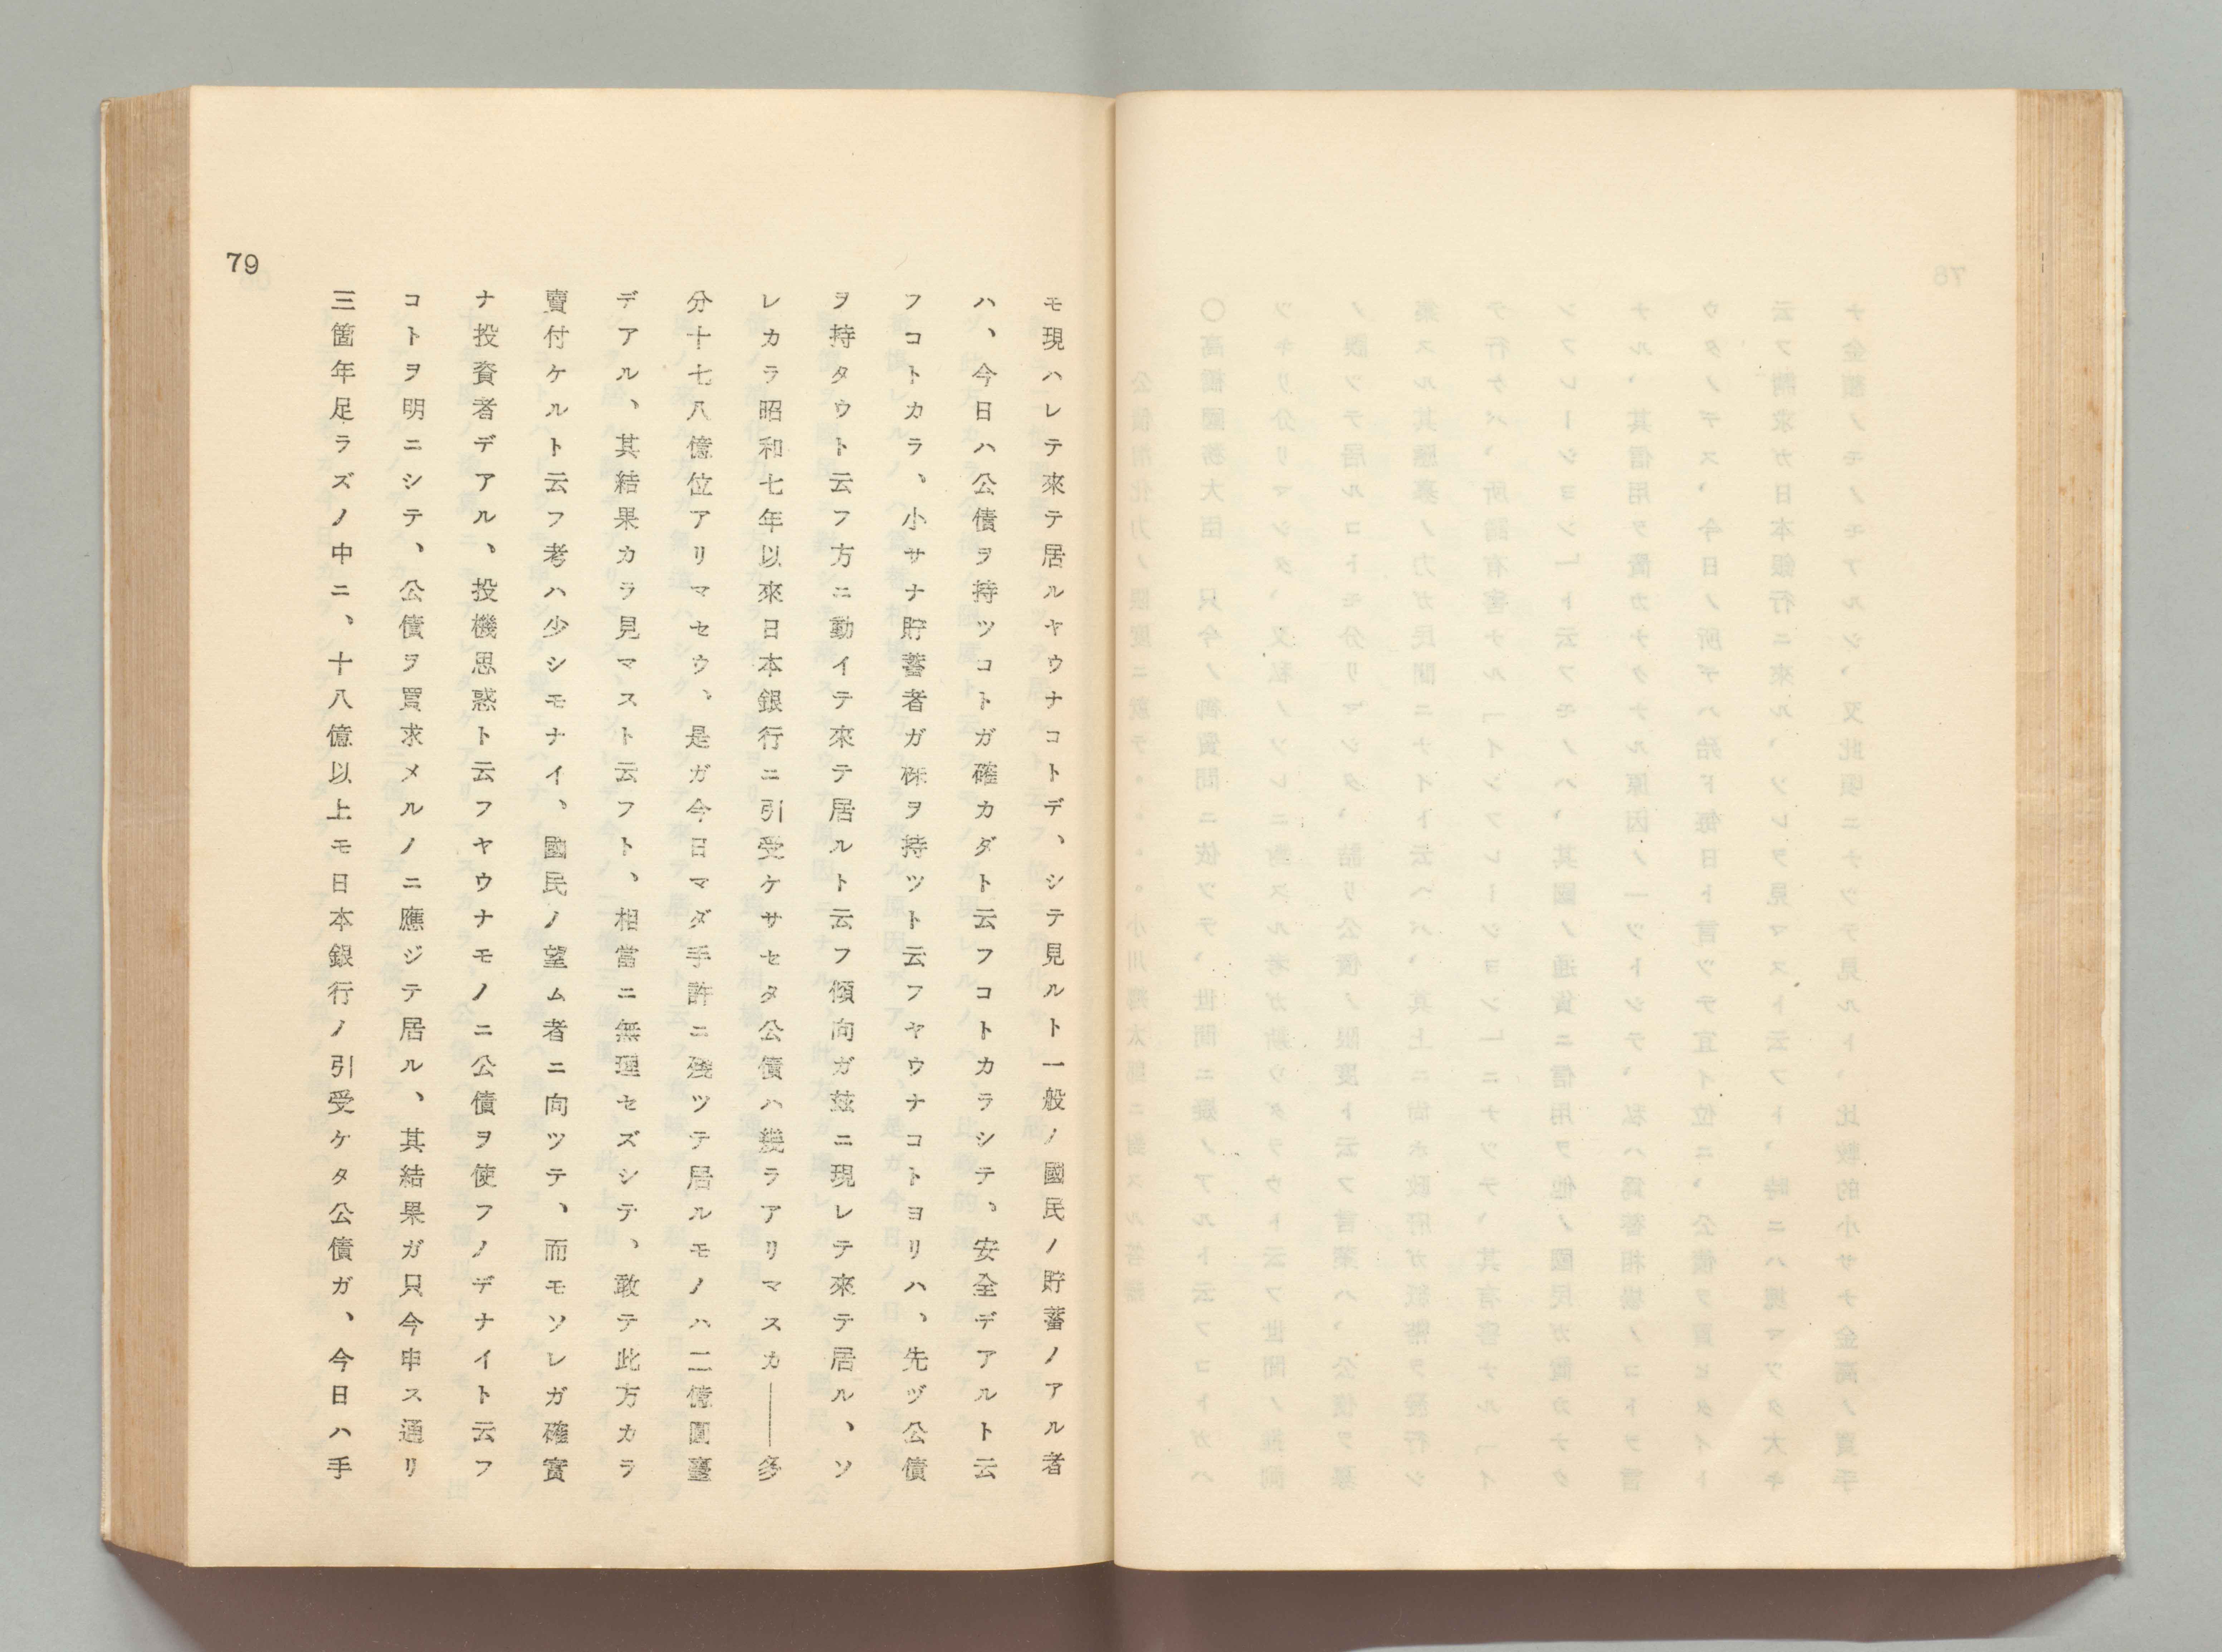 モ現ハレテ來テ居ルヤウナコトデ、シテ見ルト一般ノ國民ノ貯蓄ノアル者
ハ、今日ハ公債ヲ持ツコトガ確カダト云フコトカラシテ、安全デアルト云
フコトカラ、小サナ貯蓄者ガ株ヲ持ツト云フヤウナコトヨリハ、先ヅ公債
ヲ持タウト云フ方ニ動イテ來テ居ルト云フ傾向ガ玆ニ現レテ來テ居ル、ソ
レカラ昭和七年以來日本銀行ニ引受ケサセタ公債ハ幾ラアリマスカ――多
分十七八億位アリマセウ、是ガ今日マダ手許ニ殘ツテ居ルモノハ二億圓臺
デアル、其結果カラ見マスト云フト、相當ニ無理セズシテ、敢テ此方カラ
賣付ケルト云フ考ハ少シモナイ、國民ノ望ム者ニ向ツテ、而モソレガ確實
ナ投資者デアル、投機思惑ト云フヤウナモノニ公債ヲ使フノデナイト云フ
コトヲ明ニシテ、公債ヲ買求メルノニ應ジテ居ル、其結果ガ只今申ス通リ
三箇年足ラズノ中ニ、十八億以上モ日本銀行ノ引受ケタ公債ガ、今日ハ手
79